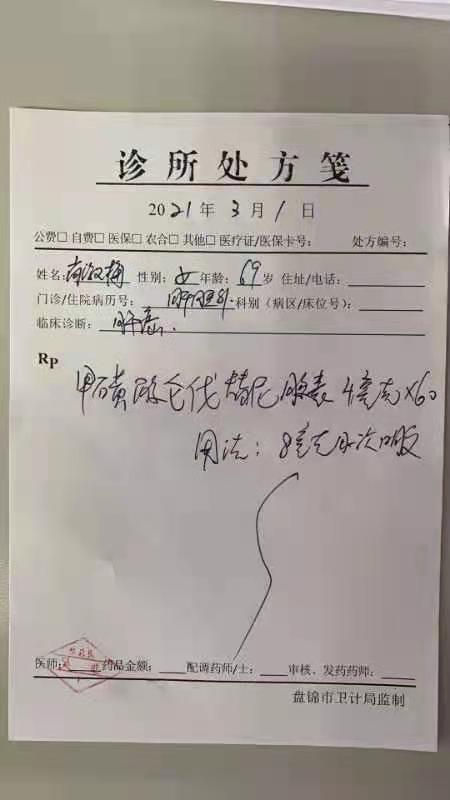 诊所处方笺
2021年3月1日
公费□ 自费□ 医保□ 农合□ 其他□ 医疗证/医保卡号： 处方编号：
姓名：淑梅 性别：女 年龄：69岁 住址/电话：
门诊/住院病历号：肝胆外 科别（病区/床位号）：
临床诊断：肝癌.
Rp
甲磺酸仑伐替尼胶囊 4毫克×60
用法：8毫克 日次口服
医师： 药品金额： 配调药师/士： 审核、发药药师：
盘锦市卫计局监制